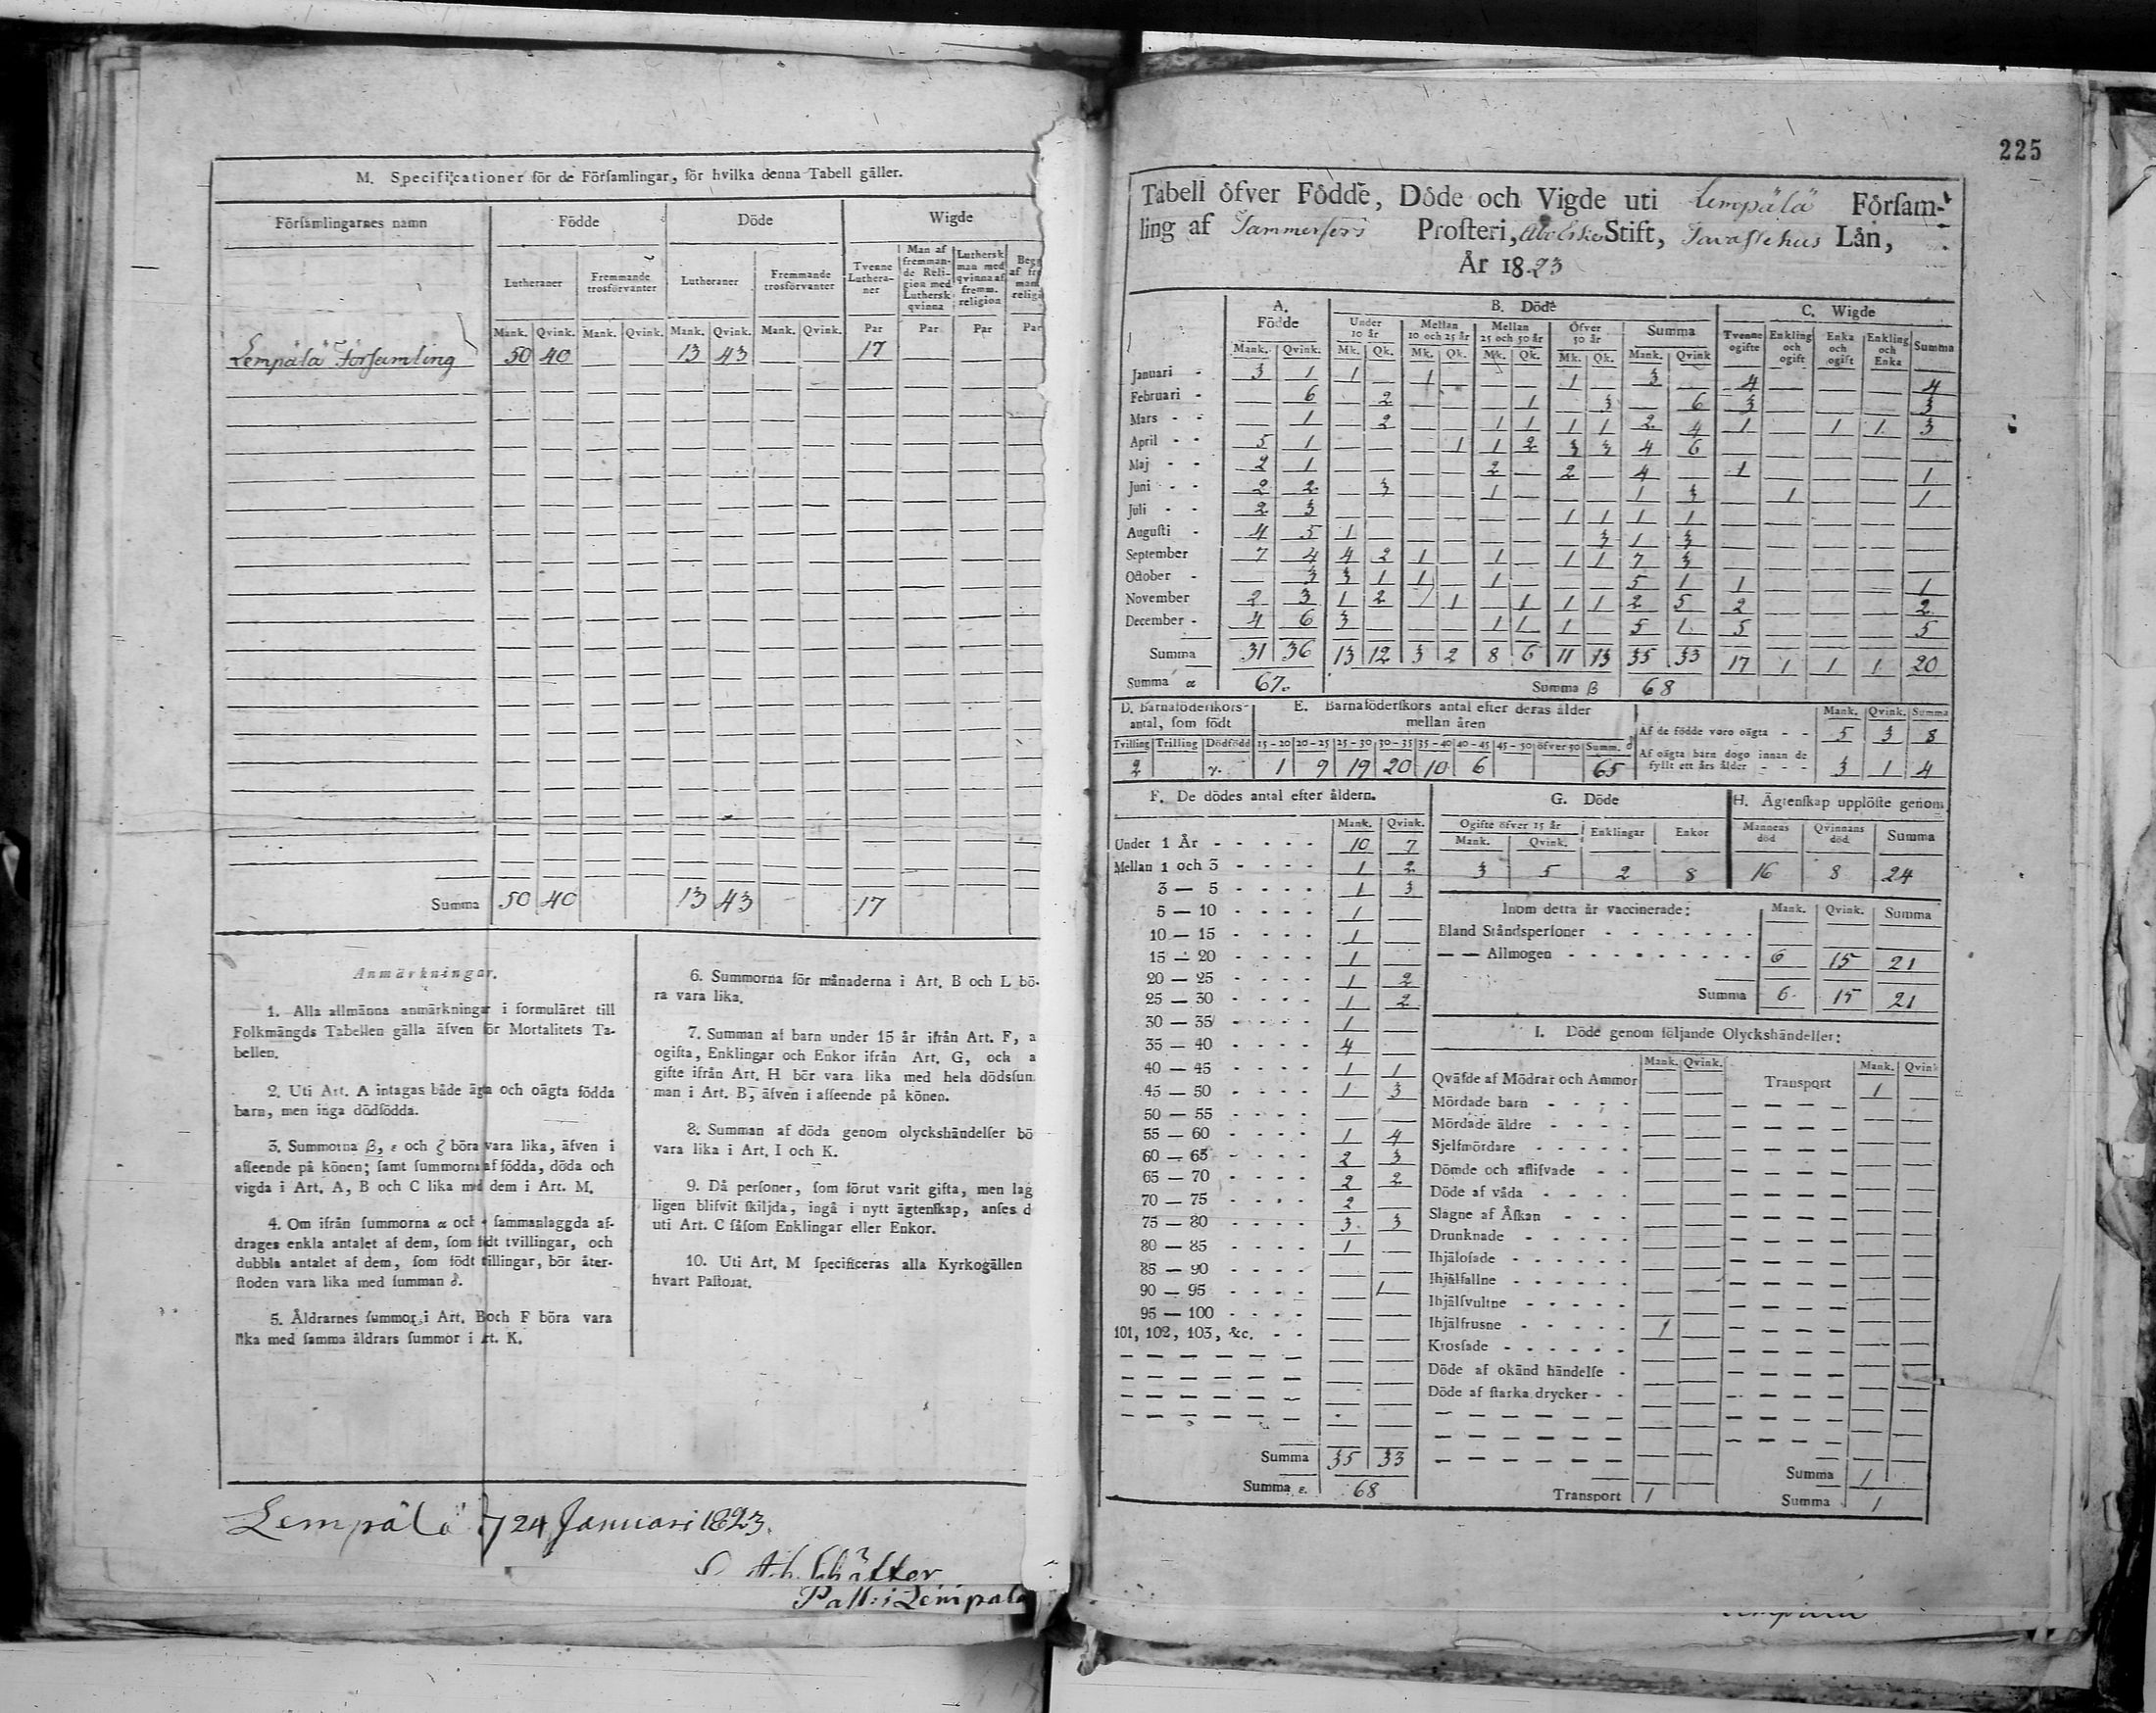 M. Specificationer för de Församlingar, för hvilka denna Tabell gäller.
Församlingarnes namn | Födde | Döde | Wigde
Lutheraner | Fremmande trosförvanter | Lutheraner | Fremmande trosförvanter | Tvenne Lutheraner | Man af fremmande Religion med Luthersk qvinna | Luthersk man med qvinna af fremm. religion
Mank. Qvink. Mank. Qvink. Mank. Qvink. Mank. Qvink. Par Par Par Par
Lempälä Församling 50 40 — — 13 43 — — 17 — —
Summa 50 40 13 43 — — 17
Anmärkningar.
1. Alla allmänna anmärkningar i formuläret till
Folkmängds Tabellen gälla äfven för Mortalitets Ta-
bellen.
2. Uti Art. A intagas både äkta och oägta födda
barn, men inga dödfödda.
3. Summorna β, ε och ζ böra vara lika, äfven i
afseende på könen; samt summorna af födda, döda och
vigda i Art. A, B och C lika med dem i Art. M.
4. Om ifrån summorna α och γ sammanlaggda af-
drages enkla antalet af dem, som födt tvillingar, och
dubbla antalet af dem, som födt tillingar, bör åter-
stoden vara lika med summan δ.
5. Åldrarnes summor i Art. B och F böra vara
lika med samma åldrars summor i Art. K.
6. Summorna för månaderna i Art. B och L bö-
ra vara lika.
7. Summan af barn under 15 år ifrån Art. F, a
ogifta, Enklingar och Enkor ifrån Art. G, och a
gifte ifrån Art. H bör vara lika med hela dödssum
man i Art. B, äfven i afseende på könen.
8. Summan af döda genom olyckshändelser bö
vara lika i Art. I och K.
9. Då personer, som förut varit gifta, men lag
ligen blifvit skiljda, ingå i nytt ägtenskap, anses d
uti Art. C såsom Enklingar eller Enkor.
10. Uti Art. M specificeras alla Kyrkogällen
hvart Pastorat.
Lempälä 24 Januari 1823.
Past: i Lempälä
225
Tabell öfver Födde, Döde och Vigde uti Lempälä Försam-
ling af Tammerfors Prosteri, Abo Stift, Tavastehus Län,
År 1823
A. Födde | B. Döde | C. Wigde
Under 10 år | Mellan 10 och 25 år | Mellan 25 och 50 år | Öfver 50 år | Summa | Tvenne ogifte | Enkling och ogift | Enka och ogift | Enkling och Enka | Summa
Mank. Qvink. Mk. Qk. Mk. Qk. Mk. Qk. Mk. Qk. Mank. Qvink
Januari - 3 1 1 — 1 — — — 1 — 3 — 4 — — — 4
Februari - — 6 — 2 — — — 1 — 3 — 6 3 — — — 3
Mars - - — 1 — 2 — — 1 1 1 1 2 4 1 — 1 1 3
April - - 5 1 — — — 1 1 2 3 3 4 6 — — — — —
Maj - - 2 1 — — — — 2 — 2 — 4 — 1 — — — 1
Juni - - 2 2 — 3 — — 1 — — — 1 3 — 1 — — 1
Juli - - 2 3 — — — — — — 1 1 1 1 — — — — —
Augusti - 4 5 1 — — — — — — 3 1 3 — — — — —
September 7 4 4 2 1 — 1 — 1 1 7 3 — — — — —
October - — 3 3 1 1 — 1 — — — 5 1 1 — — — 1
November 2 3 1 2 1 — 1 1 1 2 5 2 — — — 2
December - 4 6 3 — — — 1 1 1 — 5 1 5 — — — 5
Summa 31 36 13 12 3 2 8 6 11 13 35 33 17 1 1 1 20
Summa α 67. Summa β 68
D. Barnaföderskors antal, som födt
E. Barnaföderskors antal efter deras ålder mellan åren
Tvilling Trilling Dödfödd 15-20 20-25 25-30 30-35 35-40 40-45 45-50 öfver 50 Summ. δ
2 γ. 1 9 19 20 10 6 65
Mank. Qvink. Summa
Af de födde voro oägta - - 5 3 8
Af oägta barn dogo innan de fyllt ett års ålder - - - 3 1 4
F. De dödes antal efter åldern.
Mank. Qvink.
Under 1 År 10 7
Mellan 1 och 3 1 2
3 — 5 1 3
5 — 10 1 —
10 — 15 1 —
15 — 20 1 —
20 — 25 1 2
25 — 30 1 2
30 — 35 1 —
35 — 40 4 —
40 — 45 1 1
45 — 50 1 3
50 — 55 — —
55 — 60 1 4
60 — 65 2 3
65 — 70 2 2
70 — 75 2 —
75 — 80 3 3
80 — 85 1 —
85 — 90 — —
90 — 95 — 1
95 — 100 — —
101, 102, 103, &c. - -
Summa 35 33
Summa ε. 68
G. Döde
Ogifte öfver 15 år | Enklingar | Enkor
Mank. Qvink.
3 5 2 8
H. Ägtenskap upplöste genom
Mannens död | Qvinnans död | Summa
16 8 24
Inom detta år vaccinerade: Mank. Qvink. Summa
Bland Ståndspersoner
— — Allmogen 6 15 21
Summa 6 15 21
I. Döde genom följande Olyckshändelser:
Mank. Qvink. Mank. Qvink
Qväfde af Mödrar och Ammor — — Transport 1 —
Mördade barn
Mördade äldre
Sjelfmördare
Dömde och aflifvade
Döde af våda
Slagne af Åskan
Drunknade
Ihjälosade
Ihjälfallne
Ihjälsvultne
Ihjälfrusne 1
Krossade
Döde af okänd händelse
Döde af starka drycker
Transport 1
Summa 1
Summa 1